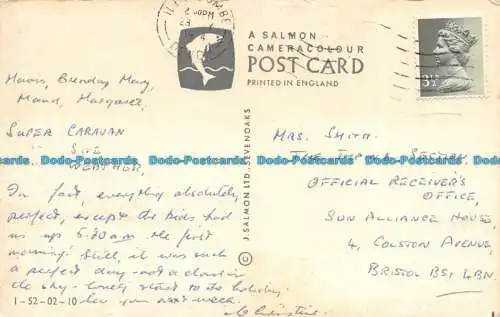 ILFRACOMBE
A SALMON
CAMERACOLOUR
POST CARD
PRINTED IN ENGLAND
3½
Brenday Mary,
Maud, Margaret,
SUPER CARAVAN
SITE
WEATHER,
In fact, everything absolutely
perfect, except the had
us up 5.30am the first
morning! Still, it was such
a perfect day - not a cloud in
the sky - lovely start to the holiday
See you next week.
Christine
1-52-02-10
© J. SALMON LTD., SEVENOAKS
MRS. SMITH
THE SECTION,
OFFICIAL RECEIVER'S
OFFICE,
SUN ALLIANCE HOUSE,
4, COLSTON AVENUE,
BRISTOL BS1 4BN
Dodo-Postcards Dodo-Postcards Dodo-Postcards Dodo-Postcards Dodo-Postcards
Dodo-Postcards Dodo-Postcards Dodo-Postcards Dodo-Postcards Dodo-Postcards